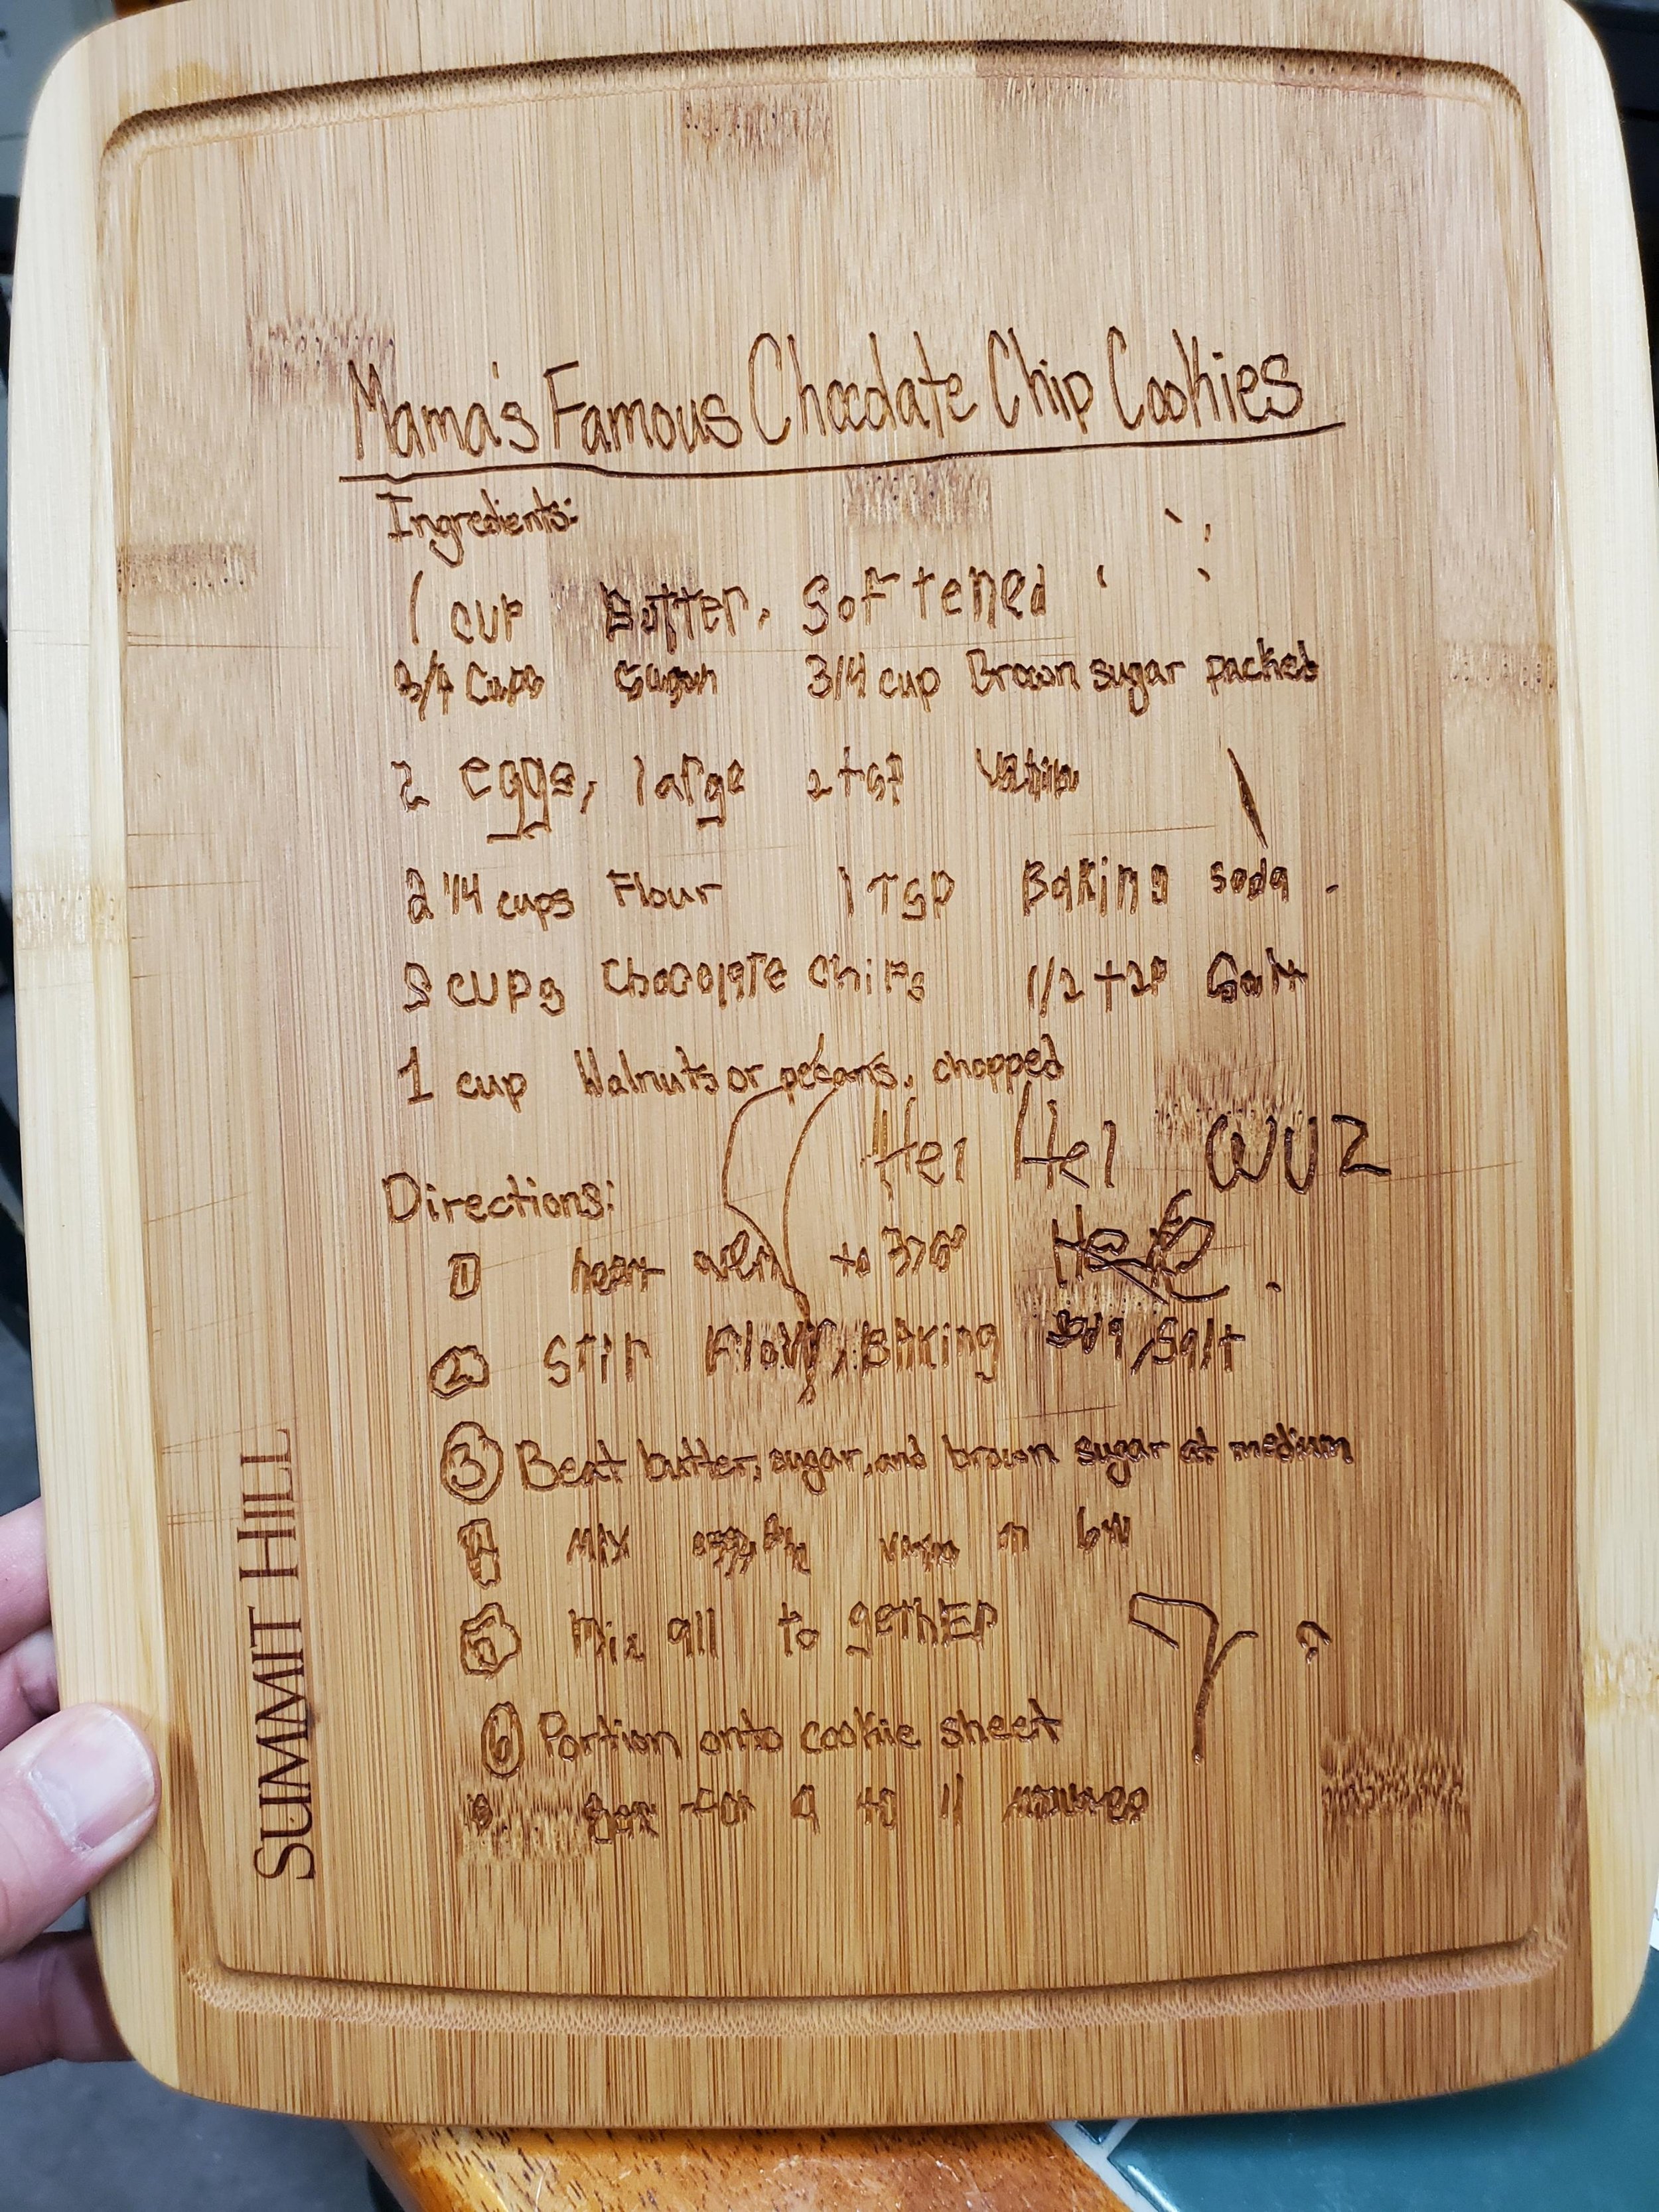 Mama's Famous Chocolate Chip Cookies
Ingredients:
1 cup Butter, Softened
3/4 Cups Sugar 3/4 cup Brown sugar packed
2 eggs, large 2 tsp
2 1/4 cups Flour 1 Tsp Baking soda
2 cups Chocolate Chips 1/2 tsp Salt
1 cup Walnuts or pecans, chopped
Hel Hel WUZ
Directions:
Here
1 heat oven to 370°
2 Stir Flour, Baking soda, Salt
3 Beat butter, sugar, and brown sugar at medium
4 Mix on low
5 Mix all to gethEr
6 Portion onto cookie sheet
for 9 to 11
SUMMIT HILL